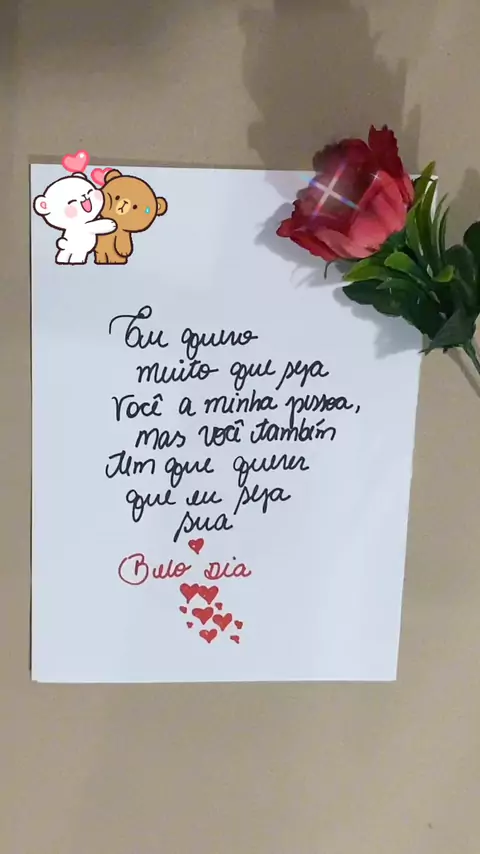 Eu quero
muito que seja
você a minha pessoa,
mas você também
tem que querer
que eu seja
sua
Belo dia